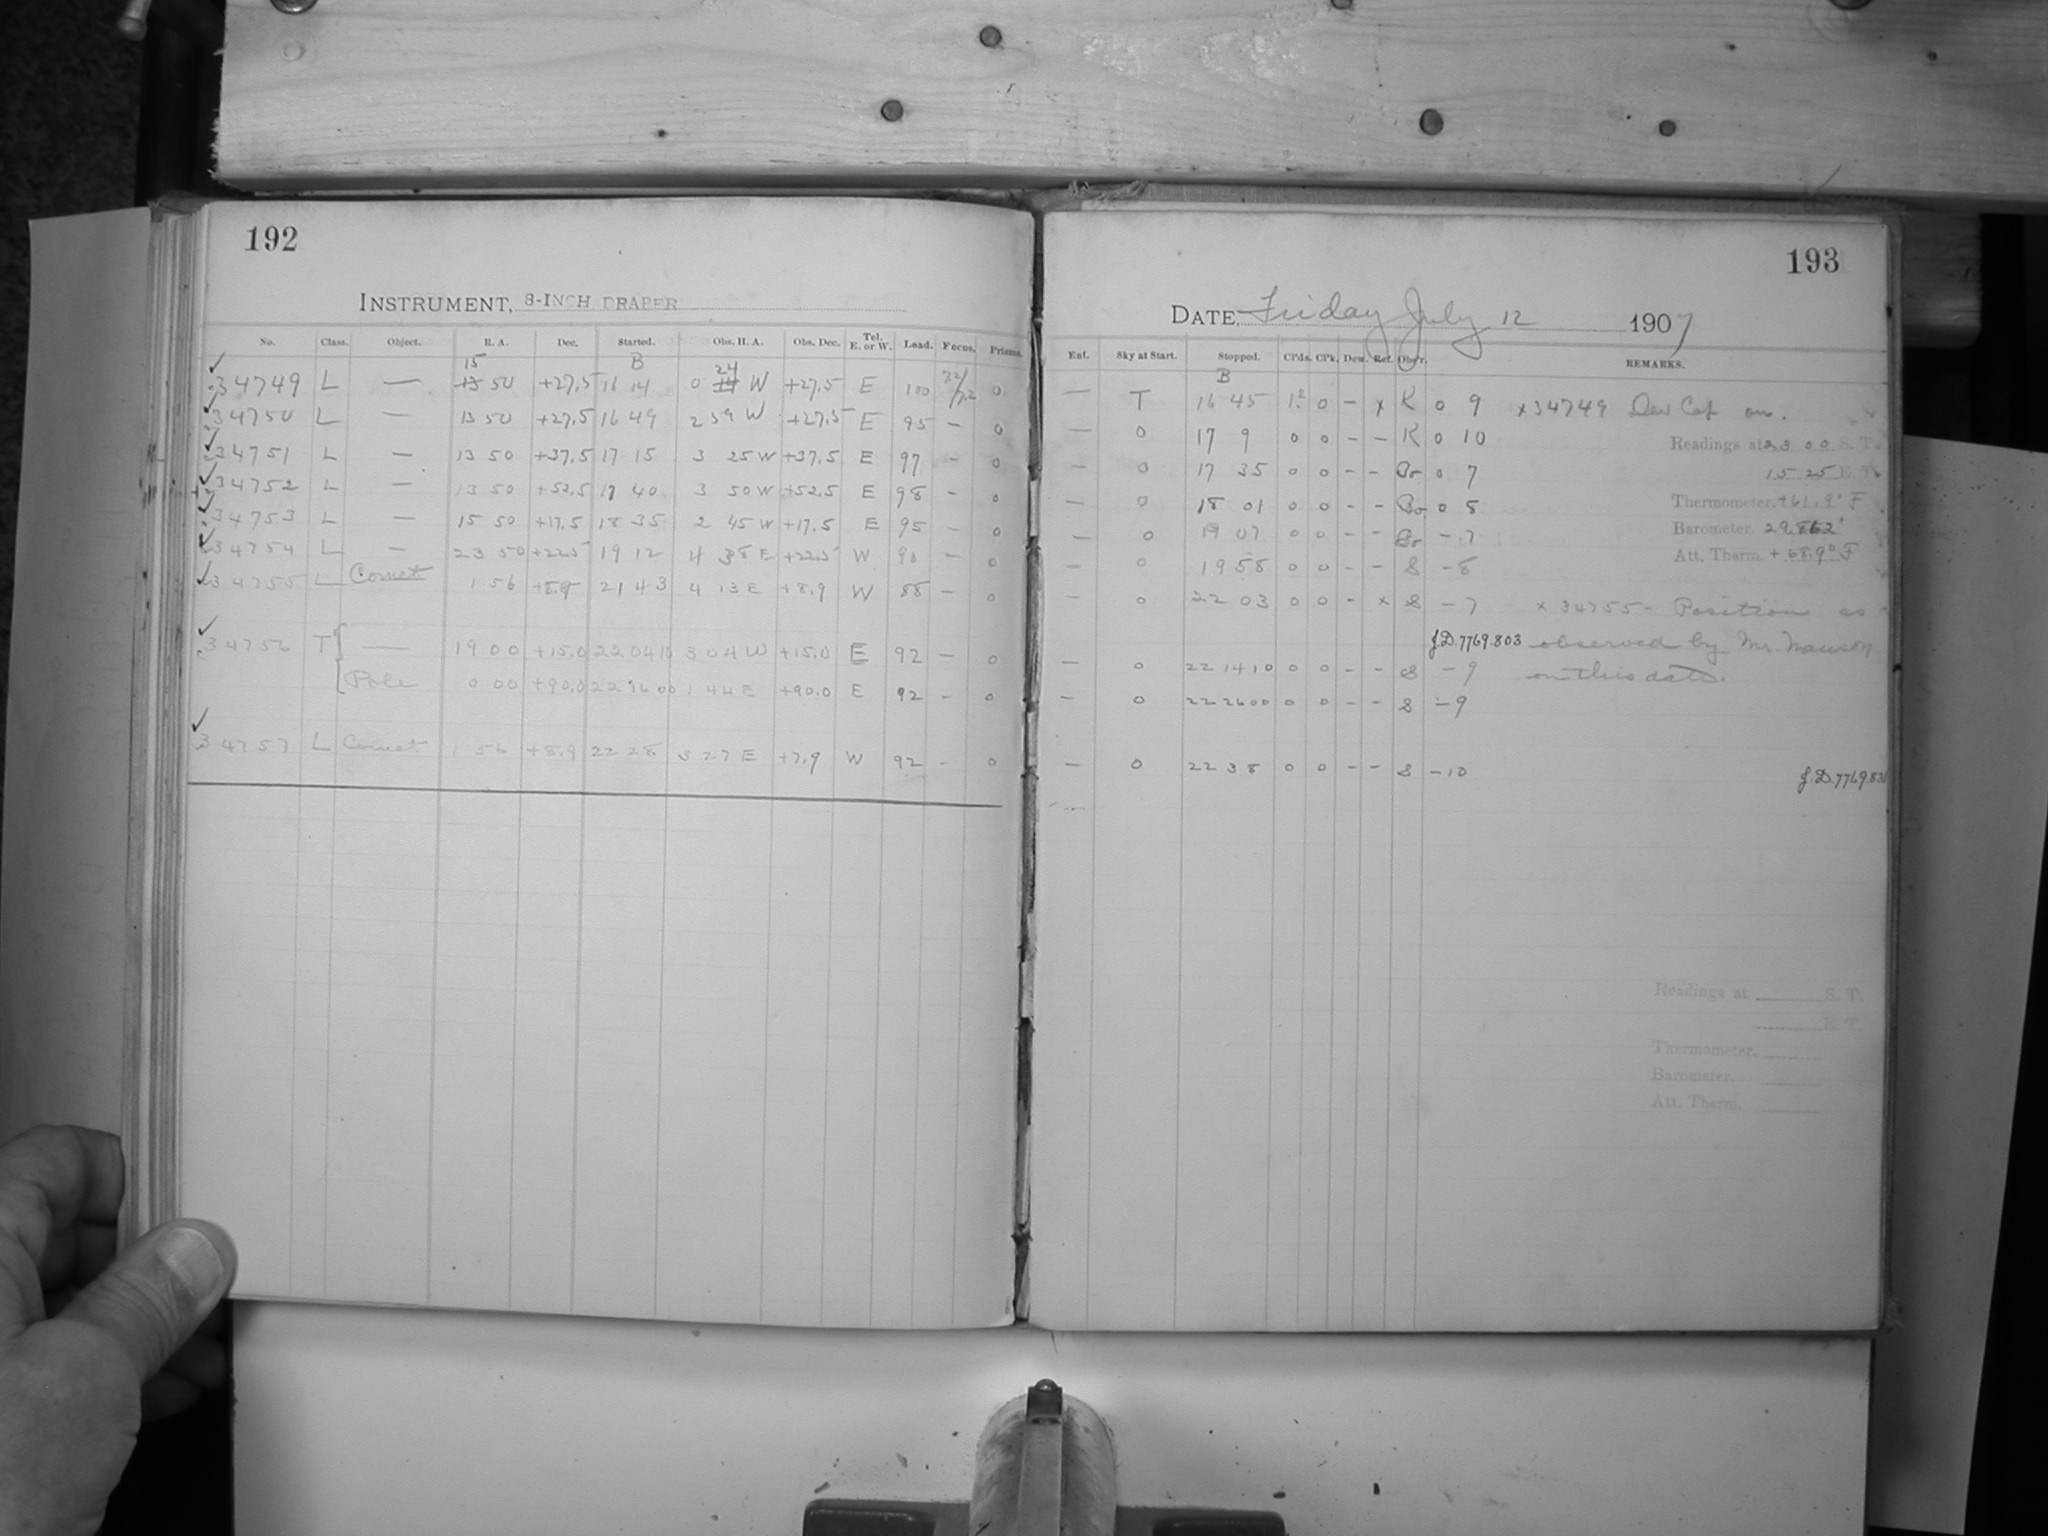 192
INSTRUMENT, 8-INCH DRAPER
No. Class. Object. R. A. Dec. Started. Obs. H. A. Obs. Dec. Tel. E. or W. Lead. Focus. Prisms.
15 B 24
34749 L — 13 50 +27.5 16 14 0 W +27.5 E 100 7.2/7.2 0
34750 L — 13 50 +27.5 16 49 2 59 W +27.5 E 95 — 0
34751 L — 13 50 +37.5 17 15 3 25 W +37.5 E 97 — 0
34752 L — 13 50 +52.5 17 40 3 50 W +52.5 E 98 — 0
34753 L — 15 50 +17.5 18 35 2 45 W +17.5 E 95 — 0
34754 L — 23 50 +22.5 19 12 4 38 E +22.5 W 90 — 0
34755 L Comet 1 56 +8.9 21 43 4 13 E +8.9 W 88 — 0
34756 T — 19 00 +15.0 22 04 10 3 04 W +15.0 E 92 — 0
Pole 0 00 +90.0 22 16 00 1 44 E +90.0 E 92 — 0
34757 L Comet 1 56 +8.9 22 28 3 27 E +7.9 W 92 — 0
193
DATE, Friday July 12 1907
Ent. Sky at Start. Stopped. Cl'ds. Cl'k. Dew. Ref. Obs'r. REMARKS.
B
— T 16 45 1.2 0 — x K 0 9 x34749 Dew Cap on.
— 0 17 9 0 0 — — K 0 10 Readings at 23 00 S. T.
— 0 17 35 0 0 — — Bo 0 7 15 25 E. T.
— 0 18 01 0 0 — — Bo 0 8 Thermometer. +61.9° F
— 0 19 07 0 0 — — Bo — 7 Barometer. 29.862
— 0 19 58 0 0 — — S — 8 Att. Therm. + 68.9° F
— 0 22 03 0 0 — x S — 7 x 34755 - Position as
J.D. 7769.803 observed by Mr.
— 0 22 14 10 0 0 — — S — 9 on this date.
— 0 22 26 00 0 0 — — S — 9
— 0 22 38 0 0 — — S — 10 J.D. 7769.83
Readings at S. T.
E. T.
Thermometer.
Barometer.
Att. Therm.